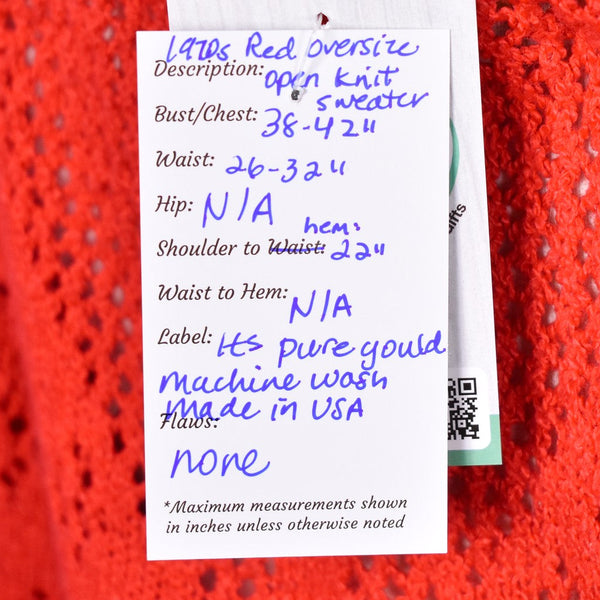 1970s Red oversize
Description: open knit
sweater
Bust/Chest: 38-42"
Waist: 26-32"
Hip: N/A
hem:
Shoulder to Waist: 22"
Waist to Hem:
N/A
Label: Its pure gould
machine wash
made in USA
Flaws:
none
*Maximum measurements shown
in inches unless otherwise noted